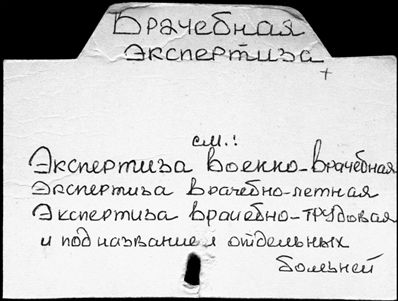 Врачебная
экспертиза
см.:
Экспертиза военно-врачебная
Экспертиза врачебно-летная
Экспертиза врачебно-трудовая
и под название м отдельных
болезней